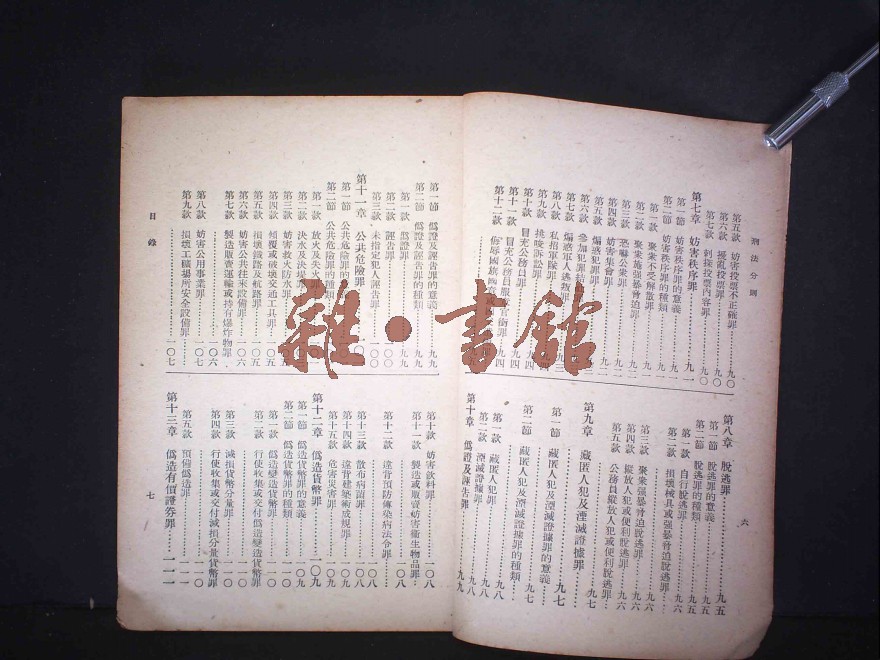 刑法分則
六
第五款 妨害投票不正確罪……九〇
第六款 擾亂投票罪……九〇
第七款 刺探投票內容罪……九〇
第七章 妨害秩序罪……九一
第一節 妨害秩序罪的意義……九一
第二節 妨害秩序罪的種類……九一
第一款 聚衆不受解散罪……九一
第二款 聚衆施強暴脅迫罪……九二
第三款 恐嚇公衆罪
第四款 妨害集會罪
第五款 煽惑犯罪罪
第六款 參加犯罪結
第七款 煽惑軍人逃叛罪
第八款 私招軍隊罪
第九款 挑唆訴訟罪
第十款 冒充公務員罪……九四
第十一款 冒充公務員服章官銜罪……九四
第十二款 侮辱國旗國章……九四
第八章 脫逃罪……九五
第一節 脫逃罪的意義……九五
第二節 脫逃罪的種類……九五
第一款 自行脫逃罪……九五
第二款 損壞械具或強暴脅迫脫逃罪……九六
第三款 聚衆強暴脅迫脫逃罪……九六
第四款 縱放人犯或便利脫逃罪……九六
第五款 公務員縱放人犯或便利脫逃罪
第九章 藏匿人犯及湮滅證據罪……九七
第一節 藏匿人犯及湮滅證據罪的意義……九七
第二節 藏匿人犯及湮滅證據罪的種類……九七
第一款 藏匿人犯罪……九八
第二款 湮滅證據罪……九八
第十章 僞證及誣告罪……九九
第一節 僞證及誣告罪的意義……九九
第二節 僞證及誣告罪的種類……九九
第一款 僞證罪……九九
第二款 誣告罪……一〇〇
第三款 未指定犯人誣告罪……一〇〇
第十一章 公共危險罪
第一節 公共危險罪的
第二節 公共危險罪的種類
第一款 放火及失火罪
第二款 決水及決堤
第三款 妨害救火防水罪
第四款 傾覆或破壞交通工具罪……一〇五
第五款 損壞鐵路及航路罪……一〇五
第六款 妨害公共往來設備罪……一〇五
第七款 製造販賣運輸或持有爆炸物罪……一〇六
第八款 妨害公用事業罪……一〇七
第九款 損壞工廠礦場所安全設備罪……一〇七
第十款 妨害飲料罪……一〇八
第十一款 製造或販賣妨害衞生物品罪……一〇八
第十二款 違背預防傳染病法令罪……一〇八
第十三款 散布病菌罪……一〇八
第十四款 違背建築術成規罪……一〇八
第十五款 危害災害罪
第十二章 僞造貨幣罪……一〇九
第一節 僞造貨幣罪的意義……一〇九
第二節 僞造貨幣罪的種類……一一〇
第一款 僞造變造貨幣罪……一一〇
第二款 行使收集或交付僞造變造貨幣罪……一一〇
第三款 減損貨幣分量罪……一一〇
第四款 行使收集或交付減損分量貨幣罪……一一〇
第五款 預備僞造罪……一一一
第十三章 僞造有價證券罪……一一一
目錄
七
雜·書館